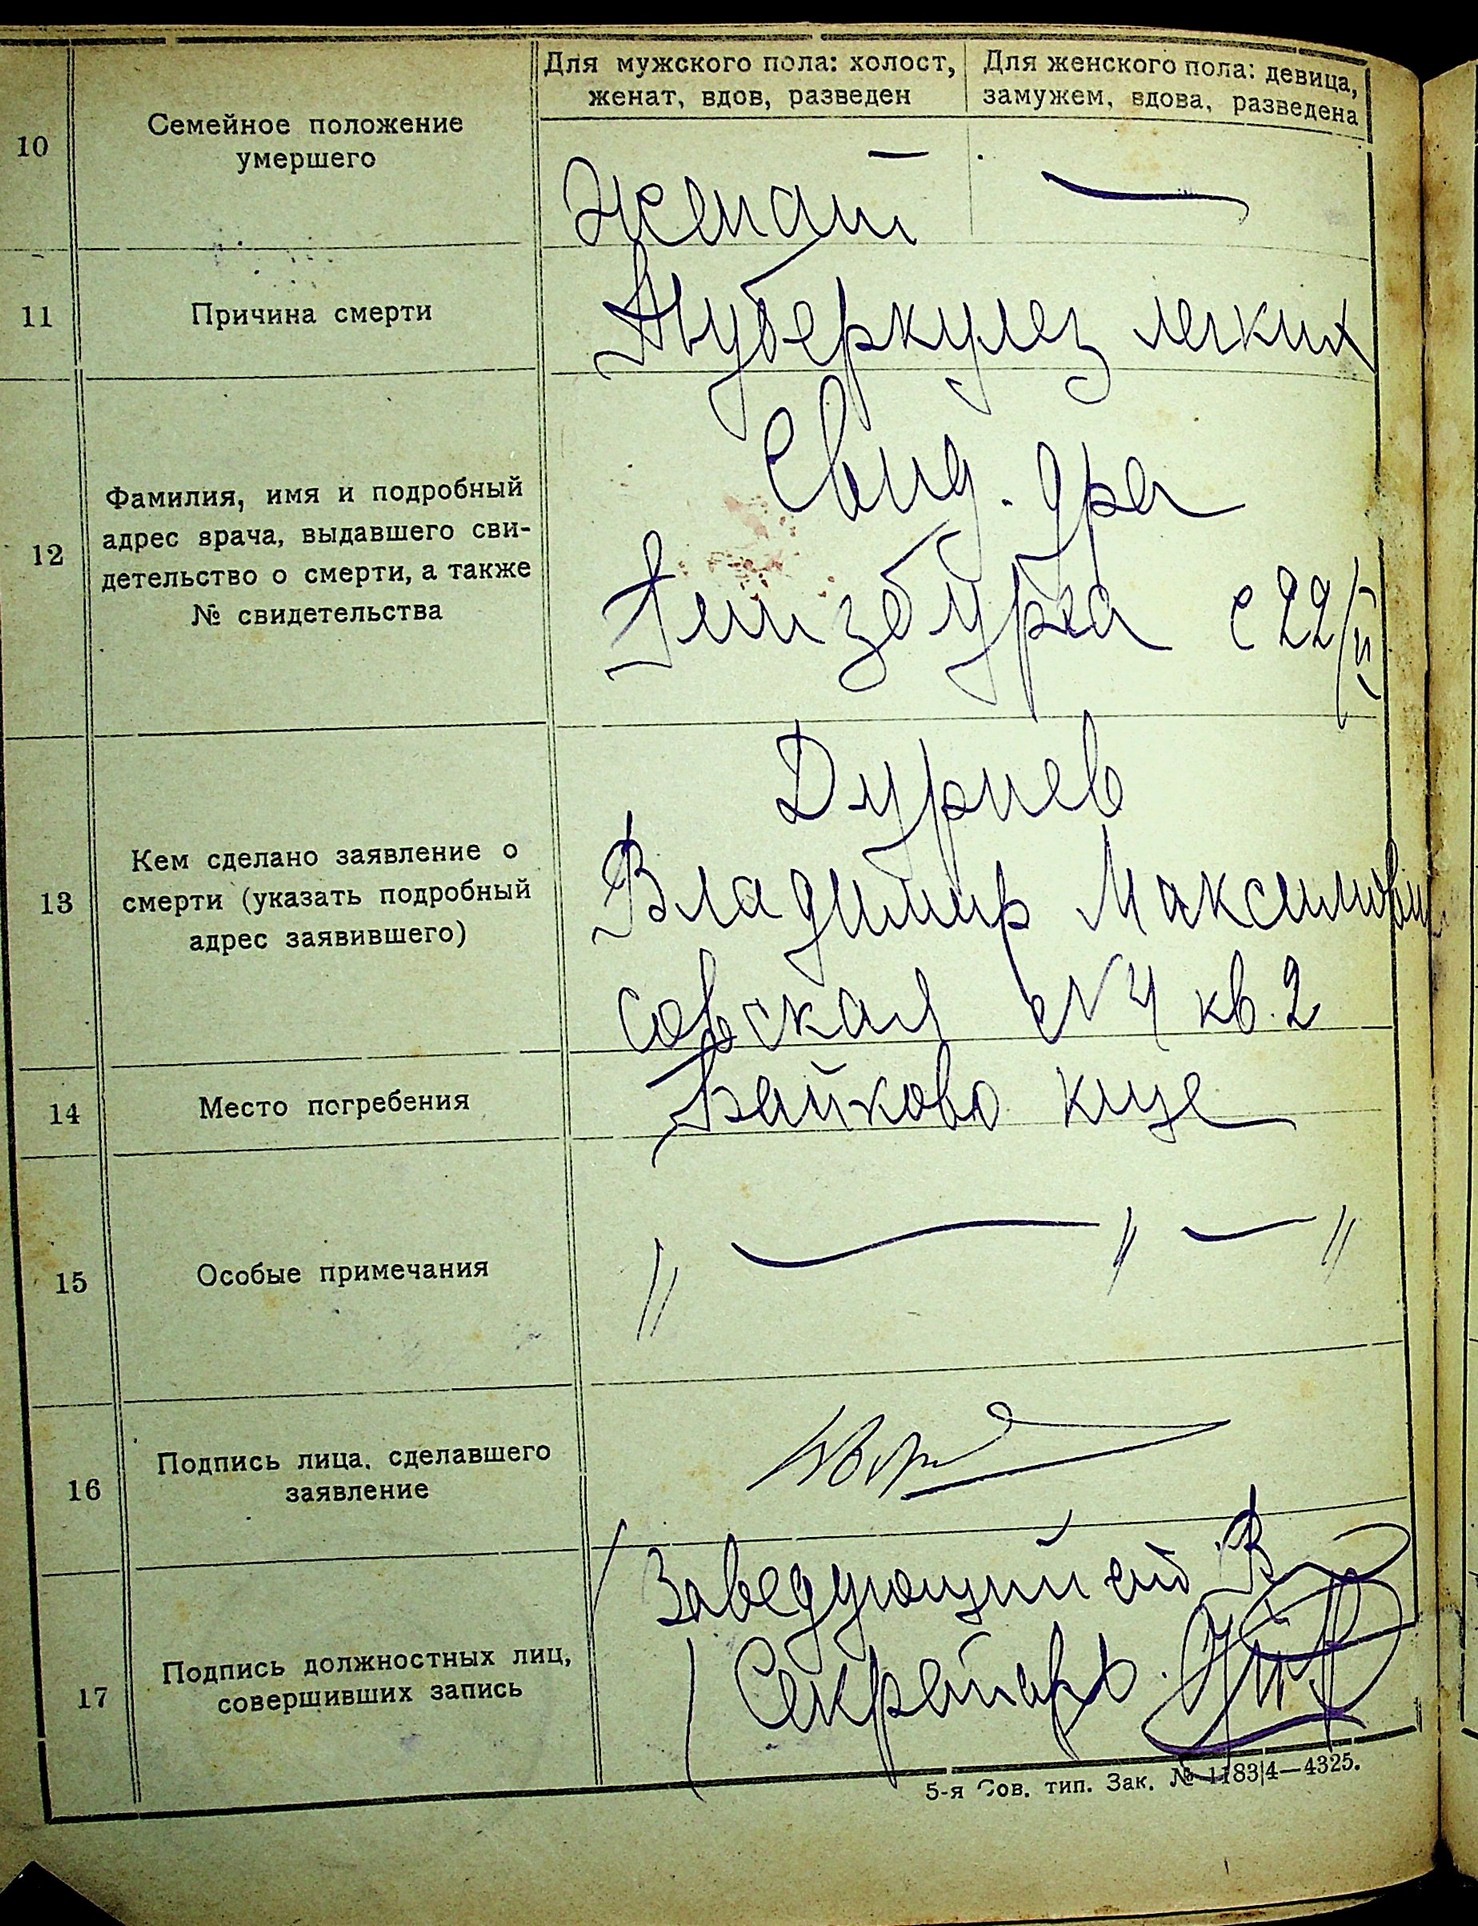 Для мужского пола: холост,
женат, вдов, разведен
Для женского пола: девица,
замужем, вдова, разведена
10
Семейное положение
умершего
Женат —
11
Причина смерти
Туберкулез легких
12
Фамилия, имя и подробный
адрес врача, выдавшего сви-
детельство о смерти, а также
№ свидетельства
Свид. дра
Гинзбурга с 22/II
13
Кем сделано заявление о
смерти (указать подробный
адрес заявившего)
Дурнев
Владимир Максимович
Совская №4 кв. 2
14
Место погребения
Байково кще
15
Особые примечания
" — " — "
16
Подпись лица, сделавшего
заявление
17
Подпись должностных лиц,
совершивших запись
Заведующий
Секретарь
5-я Сов. тип. Зак. № 1183|4—4325.